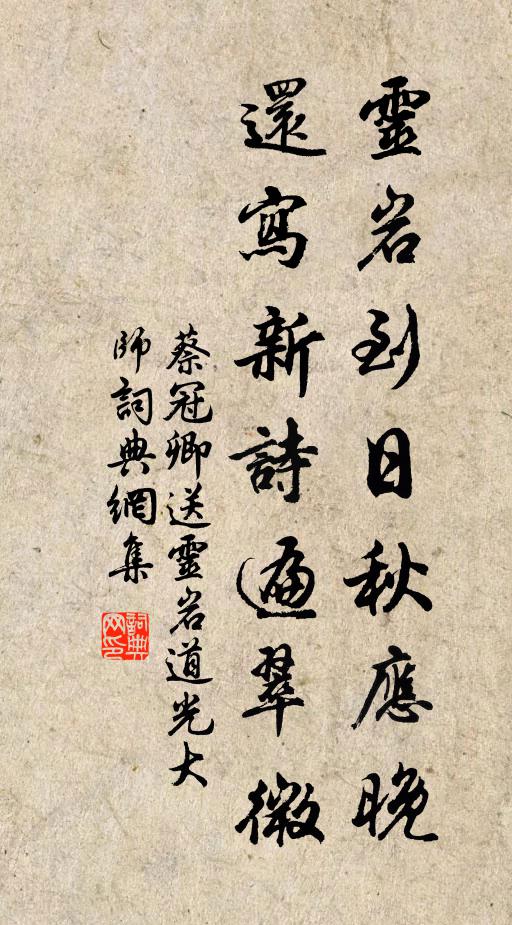 靈岩到日秋應晚
還寫新詩遍翠微
蔡冠卿送靈岩道光大
師詞典網集
詞典
网印